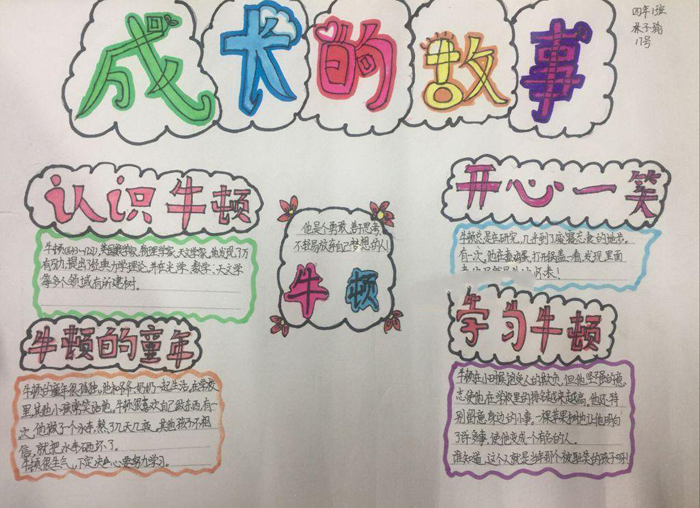 成长的故事
四年1班
17号
认识牛顿
牛顿(1643-1727),英国数学家、物理学家、天文学家,他发现了万
有引力,提出了经典力学理论,并在光学、数学、天文学
等多个领域有所建树。
牛顿的童年
牛顿的童年很孤独,他和爷爷、奶奶一起生活,在学校
里其他小孩常笑话他。牛顿很喜欢自己做东西,有一
次,他做了一个水车,熬了几天几夜,其他孩子不相
信,就把水车砸坏了。
牛顿很生气,下定决心要努力学习。
他是个勇敢,善于思考,
不轻易放弃自己梦想的人!
牛顿
开心一笑
牛顿总是在研究,几乎到了废寝忘食的地步。
有一次,他在煮鸡蛋,打开锅盖一看,发现里面
学习牛顿
牛顿在小时候总受人的欺负,但他坚强的意
志使他在学校里的排名越来越高。他还特
别留意身边的小事,一棵苹果树也让他明白
了许多事,使他变成一个有名的人。
谁知道,这个人就是当年那个被嘲笑的孩子呀!